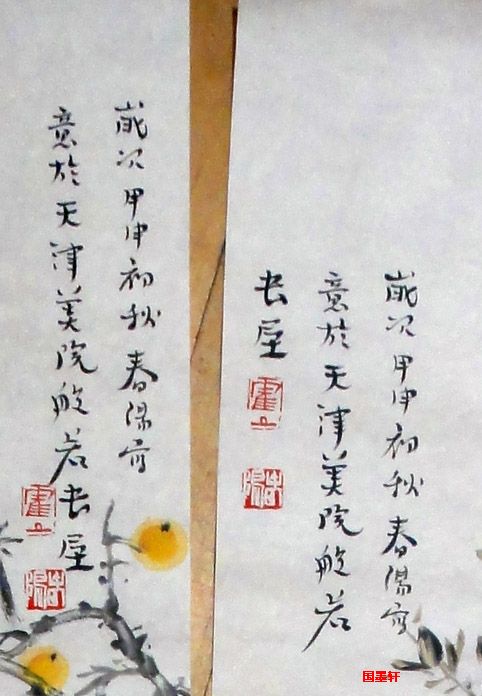 歲次甲申初秋春陽寫
意於天津美院般若书屋
歲次甲申初秋春陽寫
意於天津美院般若
书屋
国墨轩